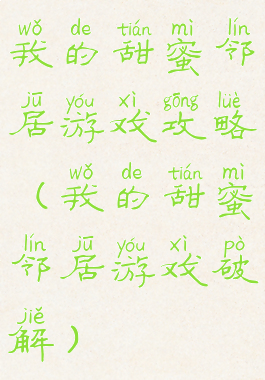 wǒ de tián mì lín
我的甜蜜邻
jū yóu xì gōng lüè
居游戏攻略
wǒ de tián mì
(我的甜蜜
lín jū yóu xì pò
邻居游戏破
jiě
解)